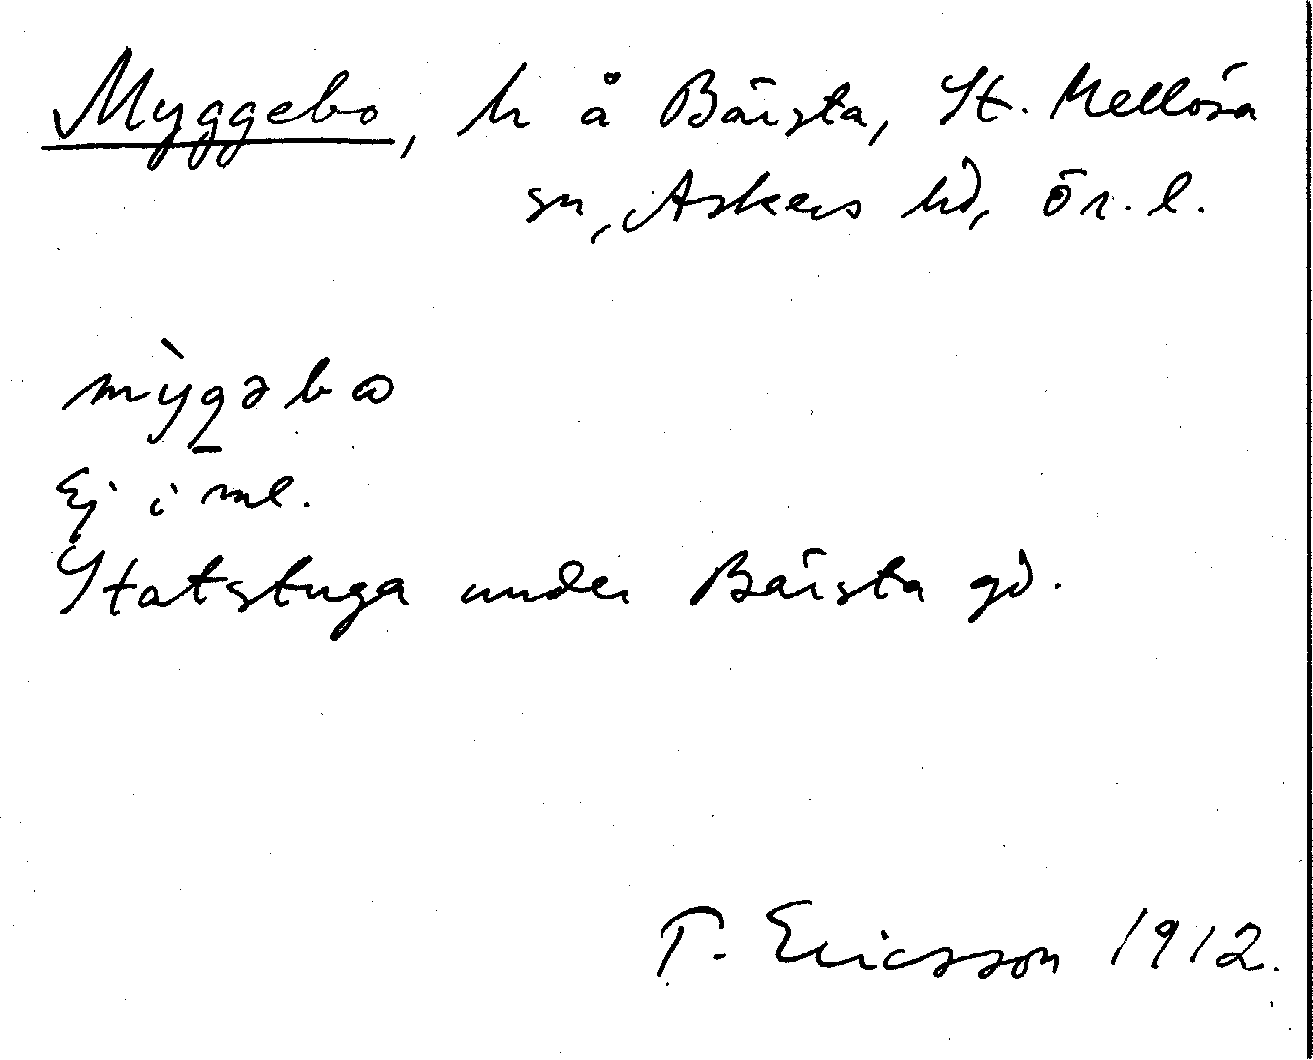 Myggebo, h å Bärsta, St. Mellösa
sn, Askers hd, Ör. l.
mỳgəbω
Ej i ml.
Statstuga under Bärsta gd.
T. Ericsson 1912.